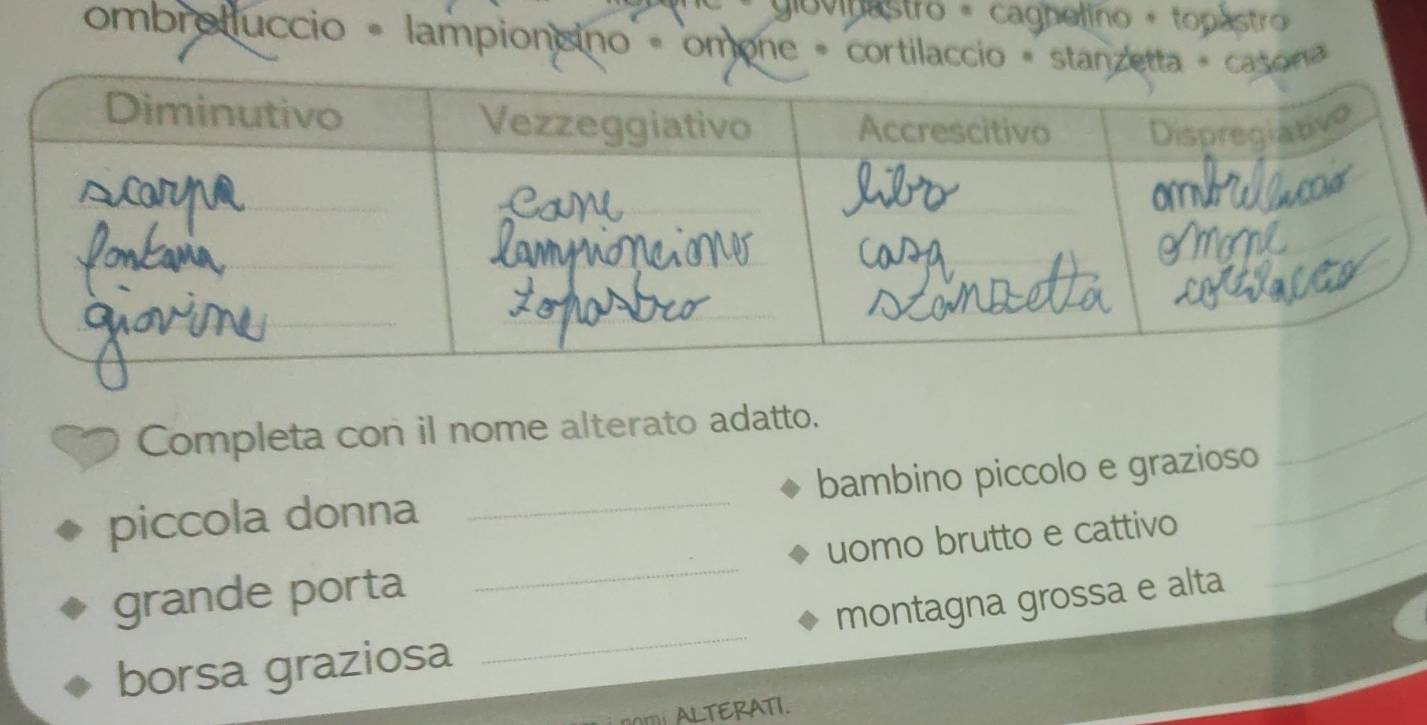 giovinastro • cagnolino • topastro
ombrelluccio • lampioncino • omone • cortilaccio • stanzetta • casona
Diminutivo Vezzeggiativo Accrescitivo Dispregiativo
scarpa cane libro
fontana lampioncionos casa omone
giovine topastro stanzetta cortilaccio
Completa con il nome alterato adatto.
piccola donna
bambino piccolo e grazioso
grande porta
uomo brutto e cattivo
borsa graziosa
montagna grossa e alta
nomi ALTERATI.